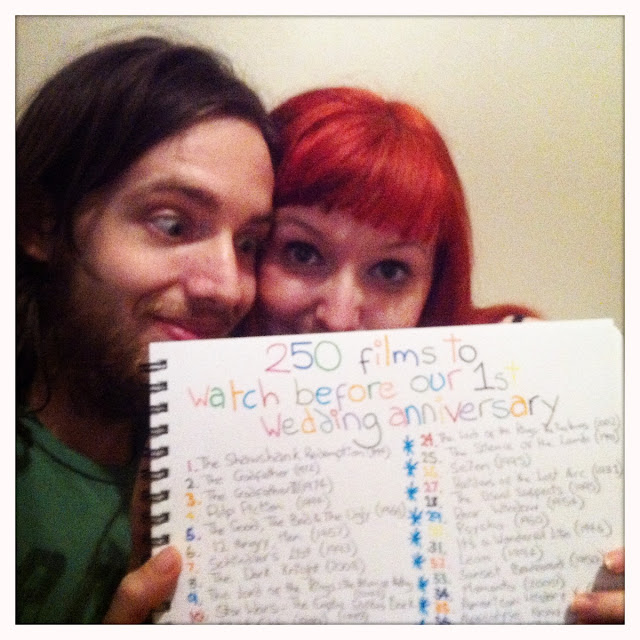 250 films to
watch before our 1st
wedding anniversary
1. The Shawshank Redemption
2. The Godfather (1972)
3. The Godfather II (1974)
4. Pulp Fiction
5. The Good, The Bad & The Ugly (1966)
6. 12 Angry Men (1957)
7. Schindler's List (1993)
8. The Dark Knight (2008)
9. The Lord of the Rings: the
10. Star Wars: The Empire Strikes Back
24. The Lord of the Rings: Towers (2002)
25. The Silence of the Lambs
26. Se7en (1995)
27. Raiders of the Lost Arc (1981)
28. The Usual Suspects (1995)
29. Rear Window (1954)
30. Psycho (1960)
31. It's a Wonderful Life (1946)
32. Leon (1994)
33. Sunset Boulevard (1950)
34. Memento (2000)
35.
36. Apocalypse